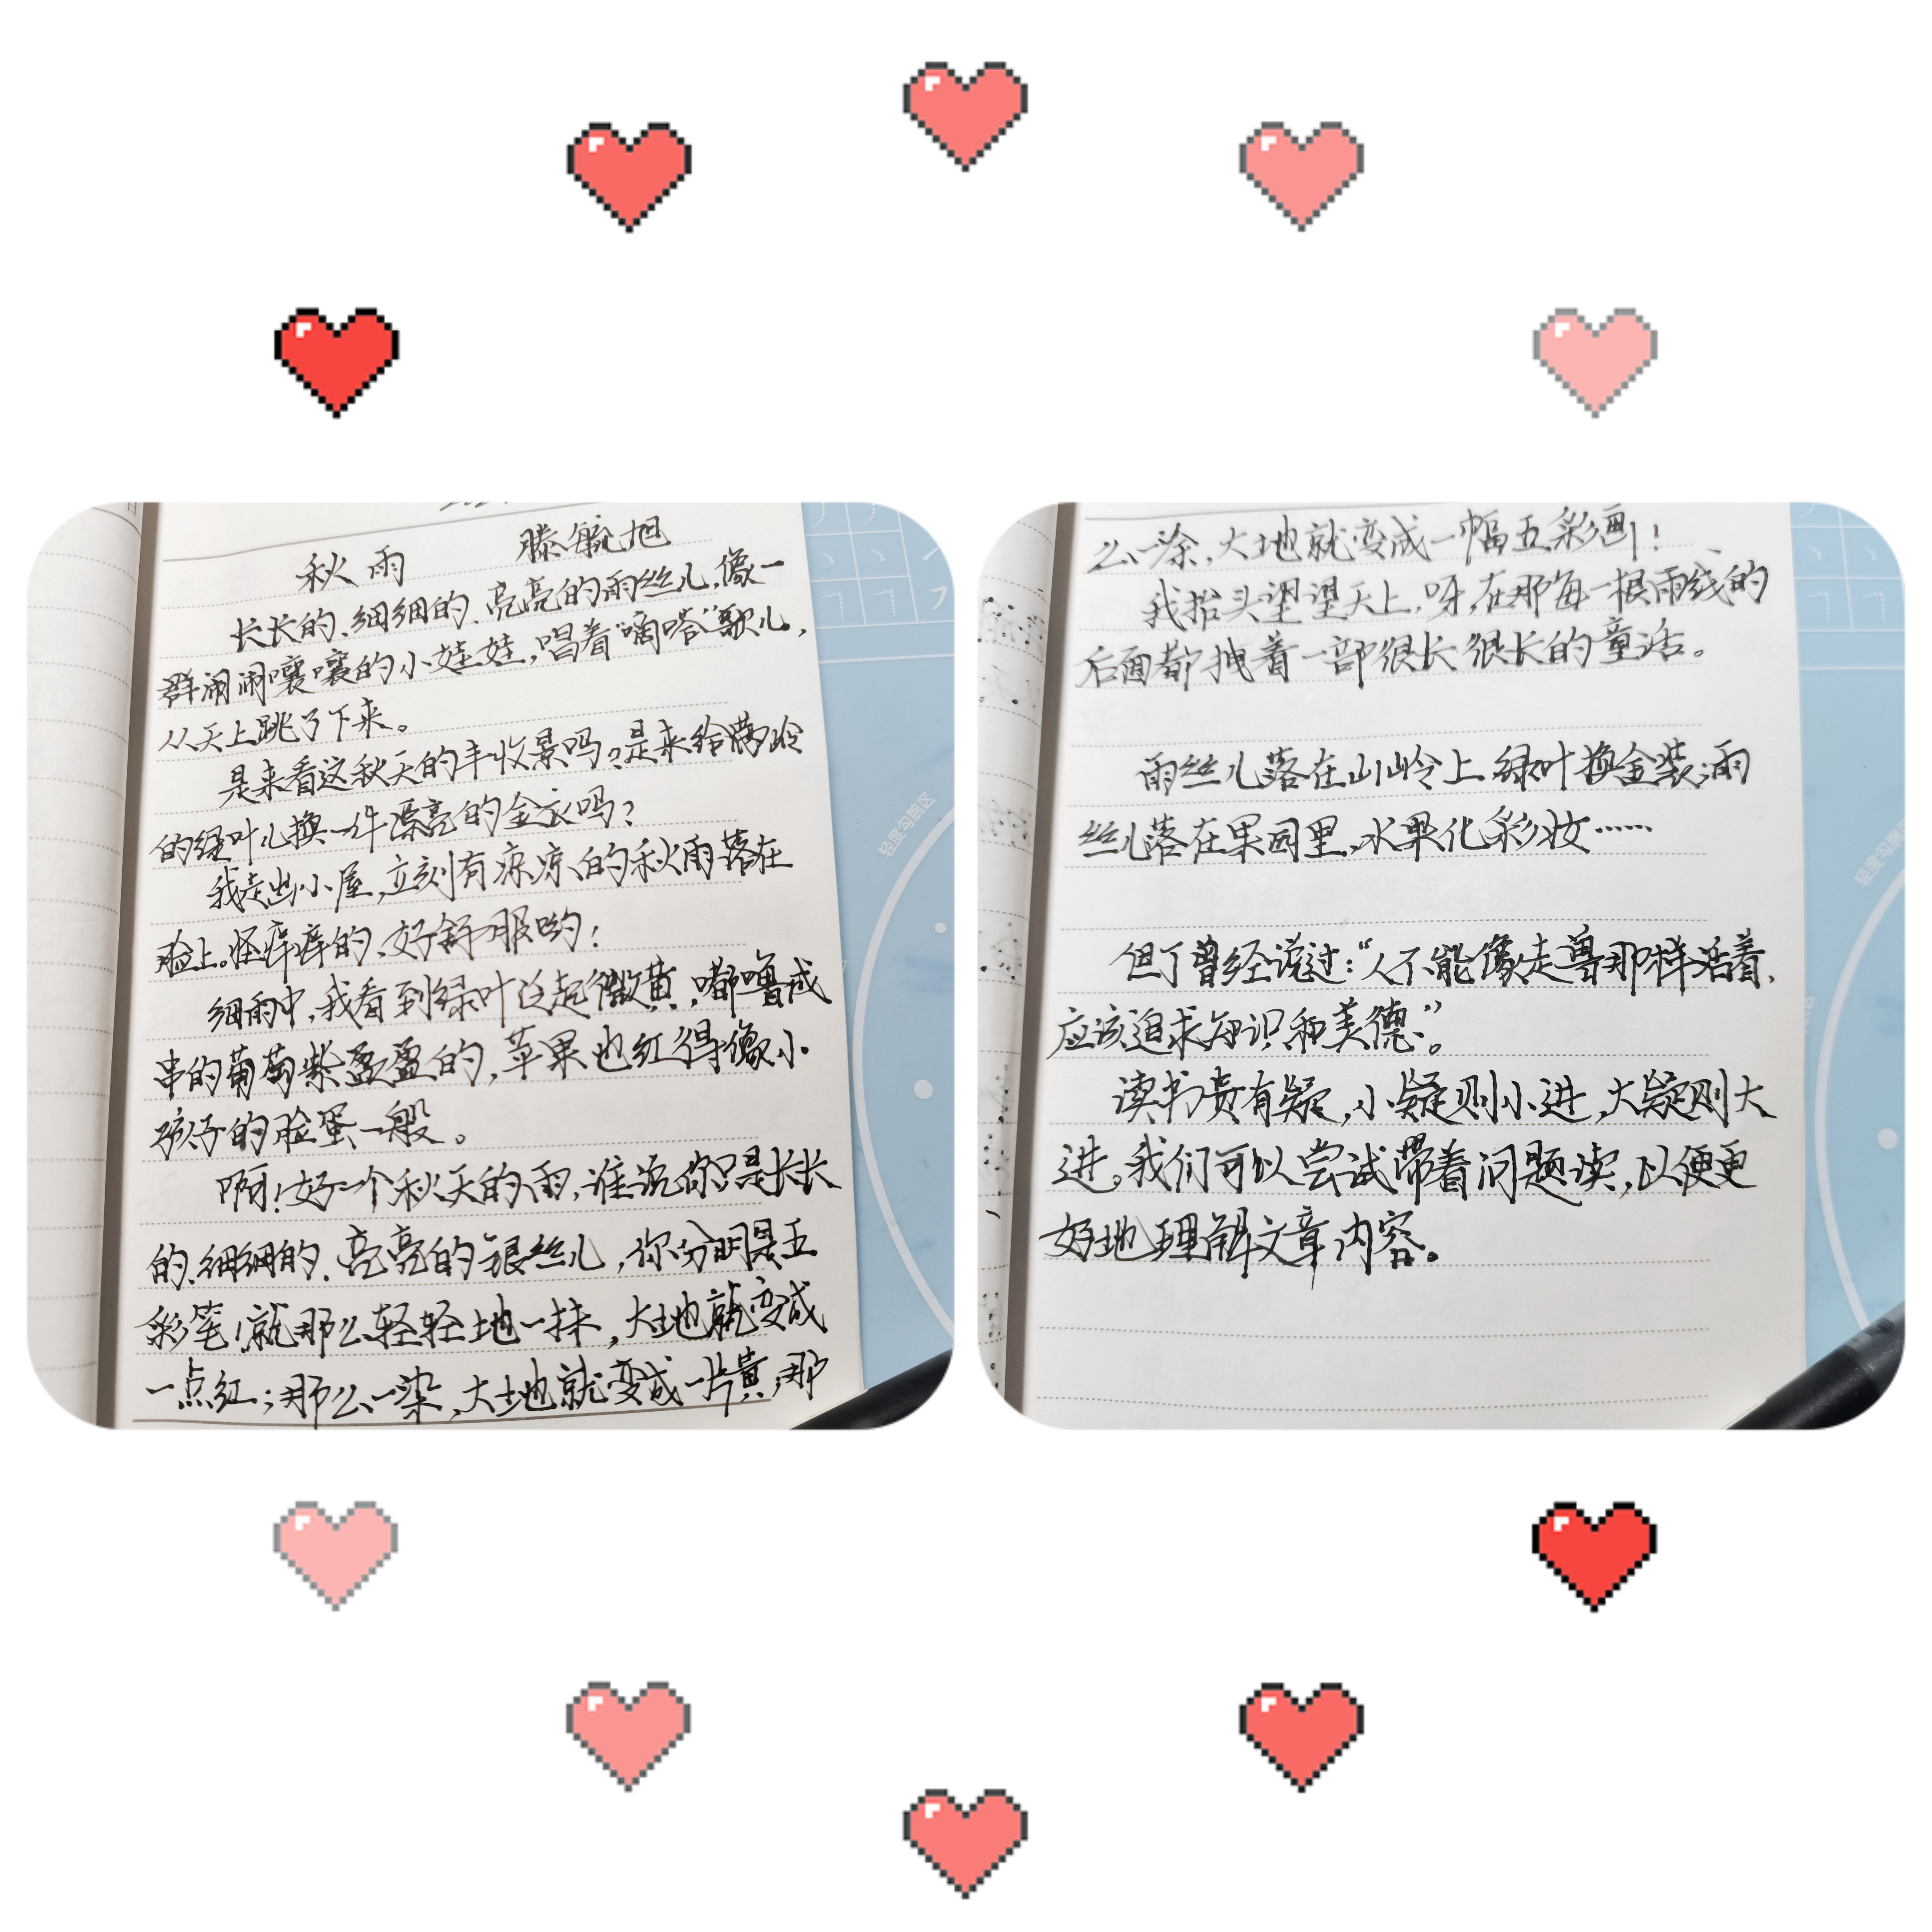 秋雨 滕毓旭
长长的、细细的、亮亮的雨丝儿,像一
群闹闹嚷嚷的小娃娃,唱着“嘀嗒”歌儿,
从天上跳了下来。
是来看这秋天的丰收景吗?是来给满岭
的绿叶儿换一件漂亮的金衣吗?
我走出小屋,立刻有凉凉的秋雨落在
脸上。怪痒痒的、好舒服哟!
细雨中,我看到绿叶泛起微黄,嘟噜成
串的葡萄紫盈盈的,苹果也红得像小
孩子的脸蛋一般。
啊!好一个秋天的雨,谁说你只是长长
的、细细的、亮亮的银丝儿,你分明是五
彩笔!就那么轻轻地一抹,大地就变成
一点红;那么一染,大地就变成一片黄;那
么一涂,大地就变成一幅五彩画!
我抬头望望天上,呀,在那每一根雨线的
后面都拽着一部很长很长的童话。
雨丝儿落在山岭上,绿叶换金装;雨
丝儿落在果园里,水果化彩妆……
但丁曾经说过:“人不能像走兽那样活着,
应该追求知识和美德。”
读书贵有疑,小疑则小进,大疑则大
进。我们可以尝试带着问题读,以便更
好地理解文章内容。
轻度勾腕区
轻度勾腕区